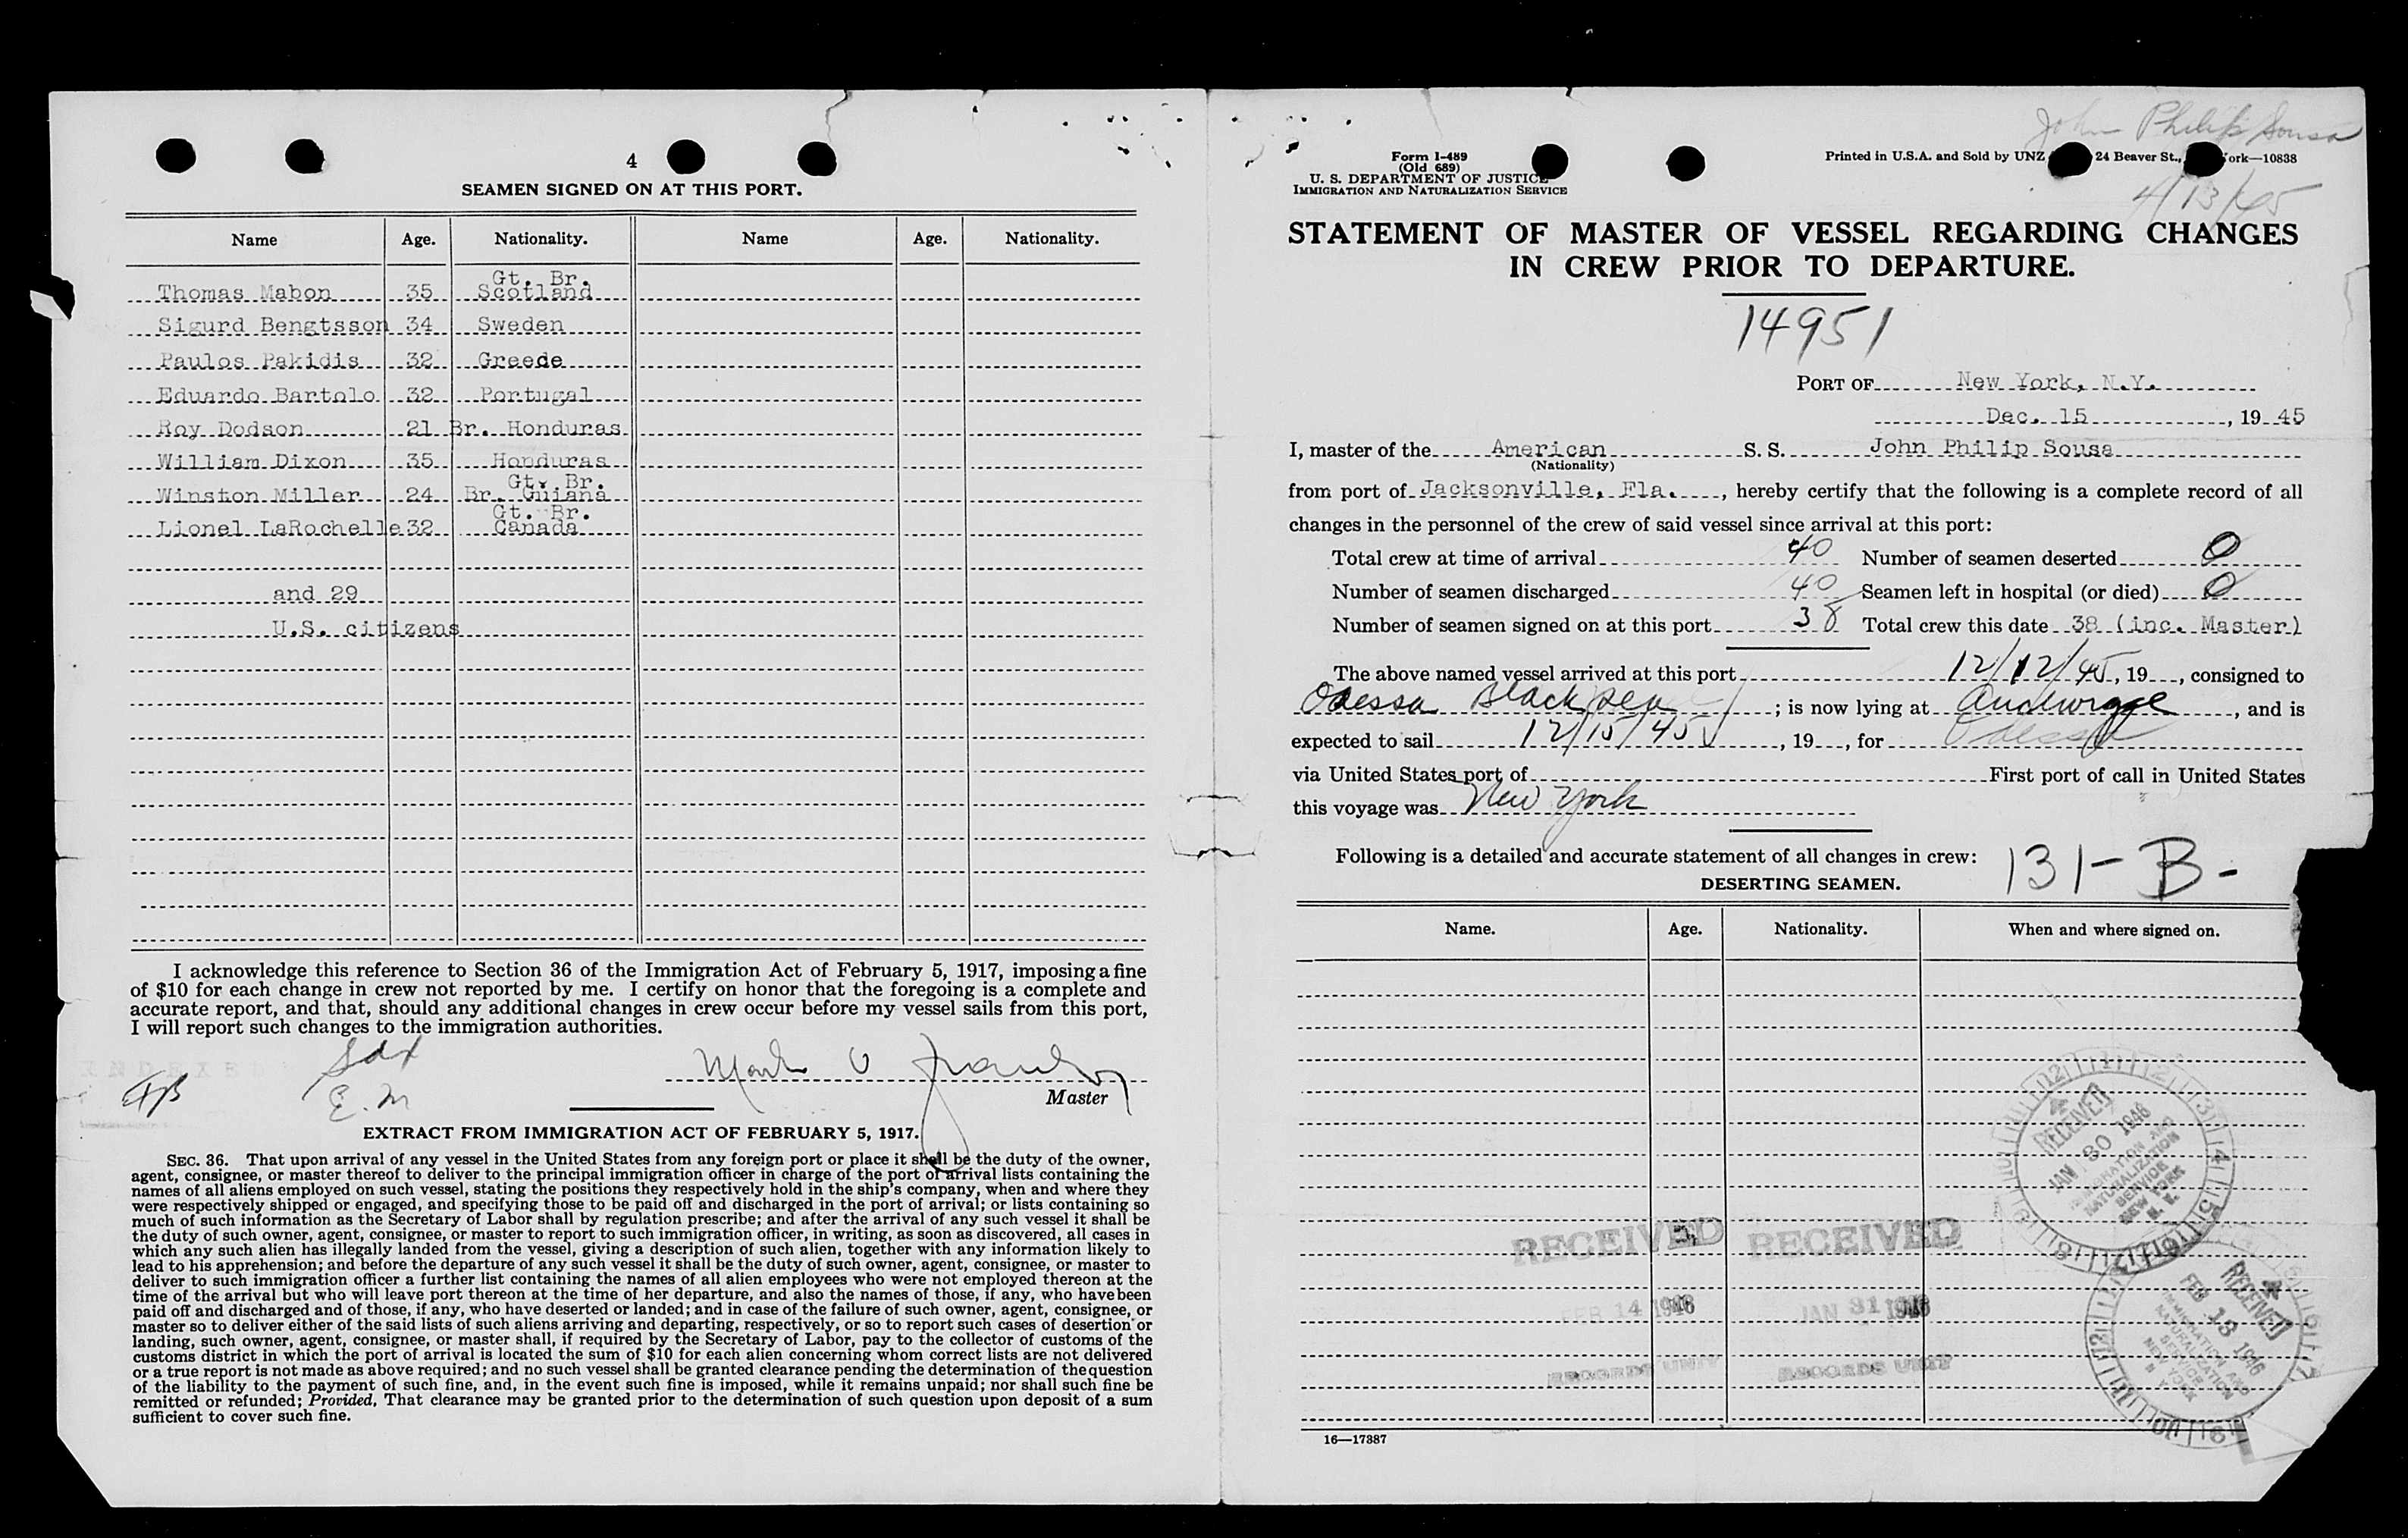 4
SEAMEN SIGNED ON AT THIS PORT.
Name Age. Nationality. Name Age. Nationality.
Thomas Mabon 35 Gt. Br. Scotland
Sigurd Bengtsson 34 Sweden
Paulos Pakidis 32 Greede
Eduardo Bartolo 32 Portugal
Roy Dodson 21 Br. Honduras
William Dixon 35 Honduras
Winston Miller 24 Gt. Br. Br. Guiana
Lionel LaRochelle 32 Gt. Br. Canada
and 29
U.S. citizens
I acknowledge this reference to Section 36 of the Immigration Act of February 5, 1917, imposing a fine
of $10 for each change in crew not reported by me. I certify on honor that the foregoing is a complete and
accurate report, and that, should any additional changes in crew occur before my vessel sails from this port,
I will report such changes to the immigration authorities.
E. M
Master
EXTRACT FROM IMMIGRATION ACT OF FEBRUARY 5, 1917.
SEC. 36. That upon arrival of any vessel in the United States from any foreign port or place it shall be the duty of the owner,
agent, consignee, or master thereof to deliver to the principal immigration officer in charge of the port of arrival lists containing the
names of all aliens employed on such vessel, stating the positions they respectively hold in the ship's company, when and where they
were respectively shipped or engaged, and specifying those to be paid off and discharged in the port of arrival; or lists containing so
much of such information as the Secretary of Labor shall by regulation prescribe; and after the arrival of any such vessel it shall be
the duty of such owner, agent, consignee, or master to report to such immigration officer, in writing, as soon as discovered, all cases in
which any such alien has illegally landed from the vessel, giving a description of such alien, together with any information likely to
lead to his apprehension; and before the departure of any such vessel it shall be the duty of such owner, agent, consignee, or master to
deliver to such immigration officer a further list containing the names of all alien employees who were not employed thereon at the
time of the arrival but who will leave port thereon at the time of her departure, and also the names of those, if any, who have been
paid off and discharged and of those, if any, who have deserted or landed; and in case of the failure of such owner, agent, consignee, or
master so to deliver either of the said lists of such aliens arriving and departing, respectively, or so to report such cases of desertion or
landing, such owner, agent, consignee, or master shall, if required by the Secretary of Labor, pay to the collector of customs of the
customs district in which the port of arrival is located the sum of $10 for each alien concerning whom correct lists are not delivered
or a true report is not made as above required; and no such vessel shall be granted clearance pending the determination of the question
of the liability to the payment of such fine, and, in the event such fine is imposed, while it remains unpaid; nor shall such fine be
remitted or refunded; Provided, That clearance may be granted prior to the determination of such question upon deposit of a sum
sufficient to cover such fine.
John Philip Sousa
Form I-489
(Old 689)
U. S. DEPARTMENT OF JUSTICE
IMMIGRATION AND NATURALIZATION SERVICE
Printed in U.S.A. and Sold by UNZ 24 Beaver St., ork—10838
4/13/45
STATEMENT OF MASTER OF VESSEL REGARDING CHANGES
IN CREW PRIOR TO DEPARTURE.
14951
PORT OF New York, N.Y.
Dec. 15, 19 45
I, master of the American S. S. John Philip Sousa
(Nationality)
from port of Jacksonville, Fla., hereby certify that the following is a complete record of all
changes in the personnel of the crew of said vessel since arrival at this port:
Total crew at time of arrival 40 Number of seamen deserted 0
Number of seamen discharged 40 Seamen left in hospital (or died) 0
Number of seamen signed on at this port 38 Total crew this date 38 (inc. Master)
The above named vessel arrived at this port 12/12/45, 19 , consigned to
Odessa Black Sea ; is now lying at , and is
expected to sail 12/15/45, 19 , for Odessa
via United States port of First port of call in United States
this voyage was New York
Following is a detailed and accurate statement of all changes in crew:
131-B-
DESERTING SEAMEN.
Name. Age. Nationality. When and where signed on.
RECEIVED
JAN 30 1946
IMMIGRATION AND
NATURALIZATION
SERVICE
NEW YORK
N. Y.
RECEIVED RECEIVED
FEB 14 1946 JAN 31 1946
RECORDS UNIT RECORDS UNIT
RECEIVED
FEB 13 1946
IMMIGRATION AND
NATURALIZATION
SERVICE
NEW YORK
N. Y.
16—17887